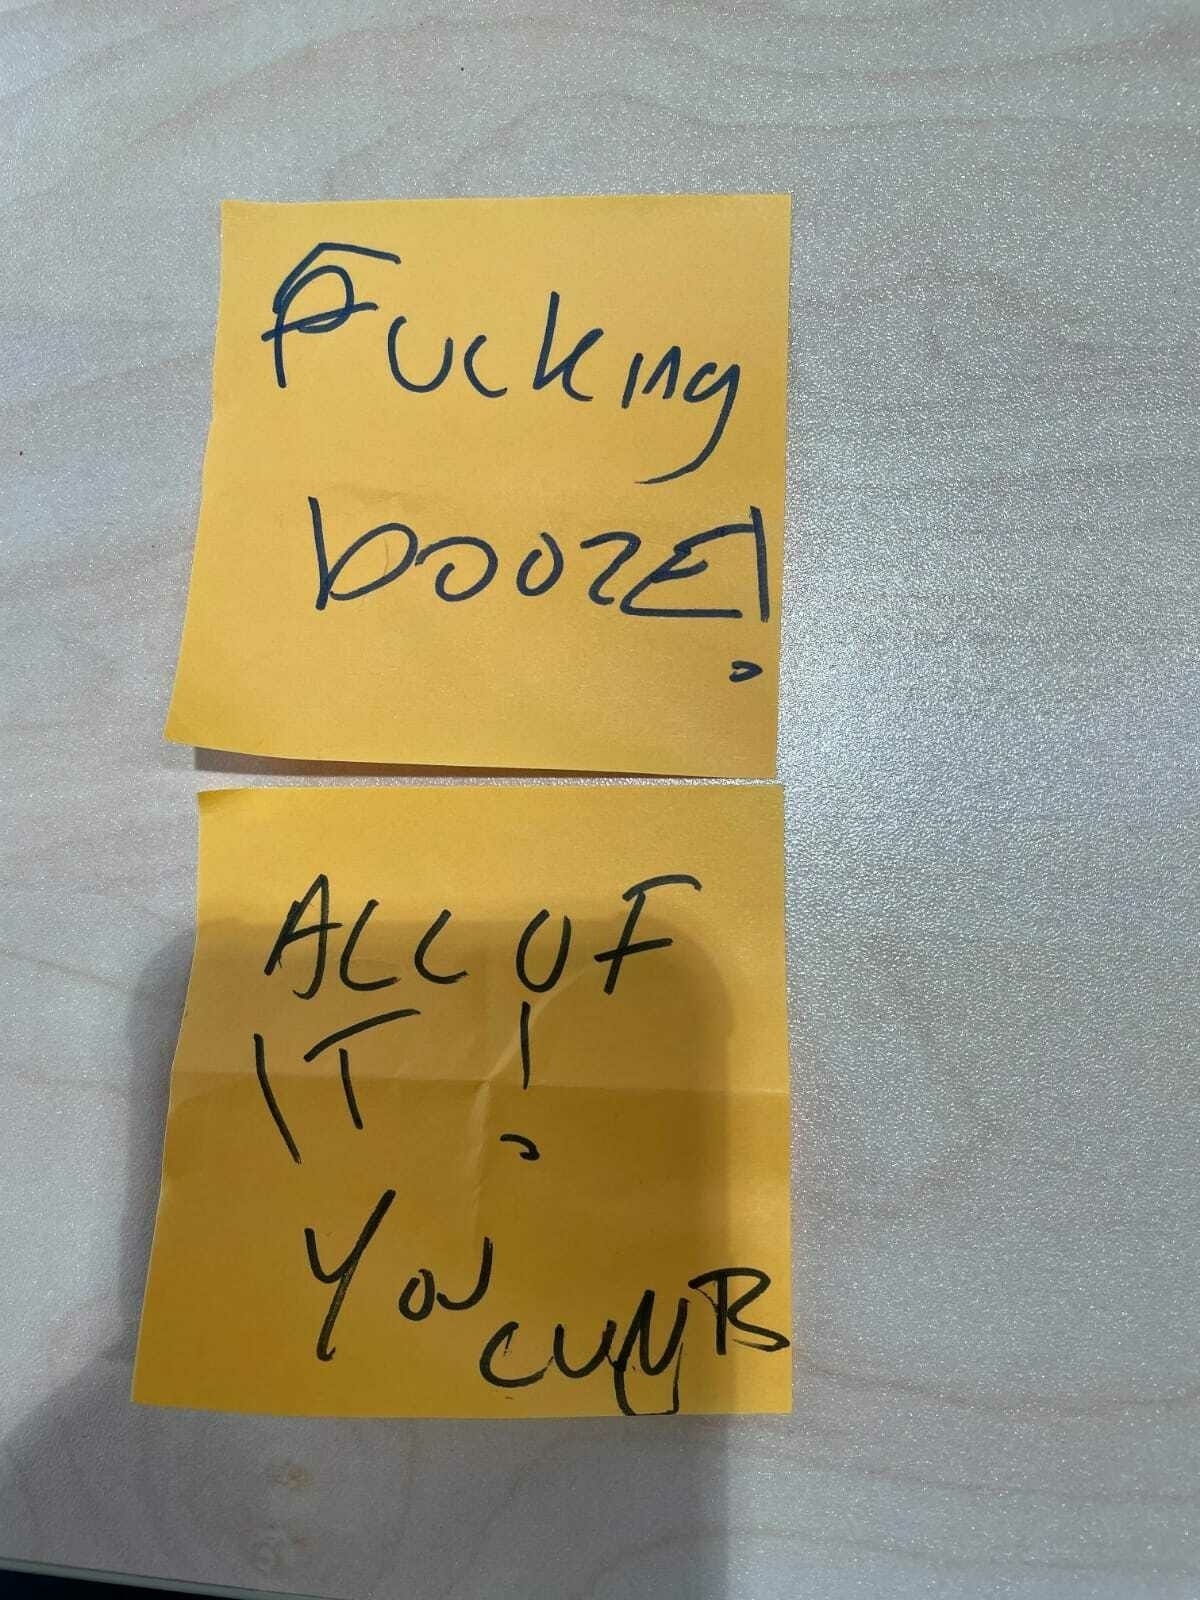 Fucking
booZE!
ALL OF
IT!
You